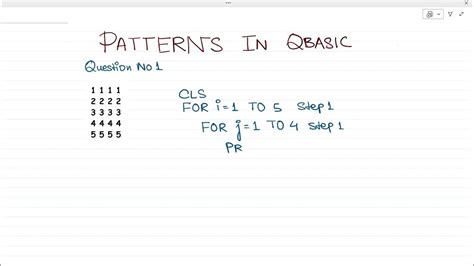 PATTERNS IN QBASIC
Question No 1
1 1 1 1
2 2 2 2
3 3 3 3
4 4 4 4
5 5 5 5
CLS
FOR i=1 TO 5 Step 1
FOR j=1 TO 4 Step 1
PR